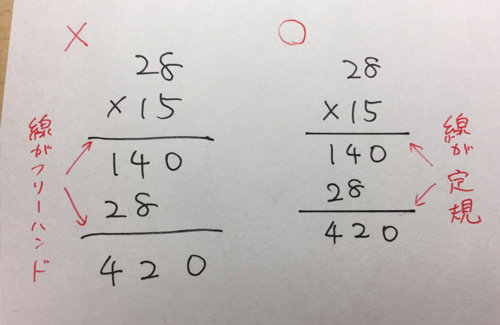 ×
28
×15
140
28
420
線がフリーハンド
○
28
×15
140
28
420
線が定規